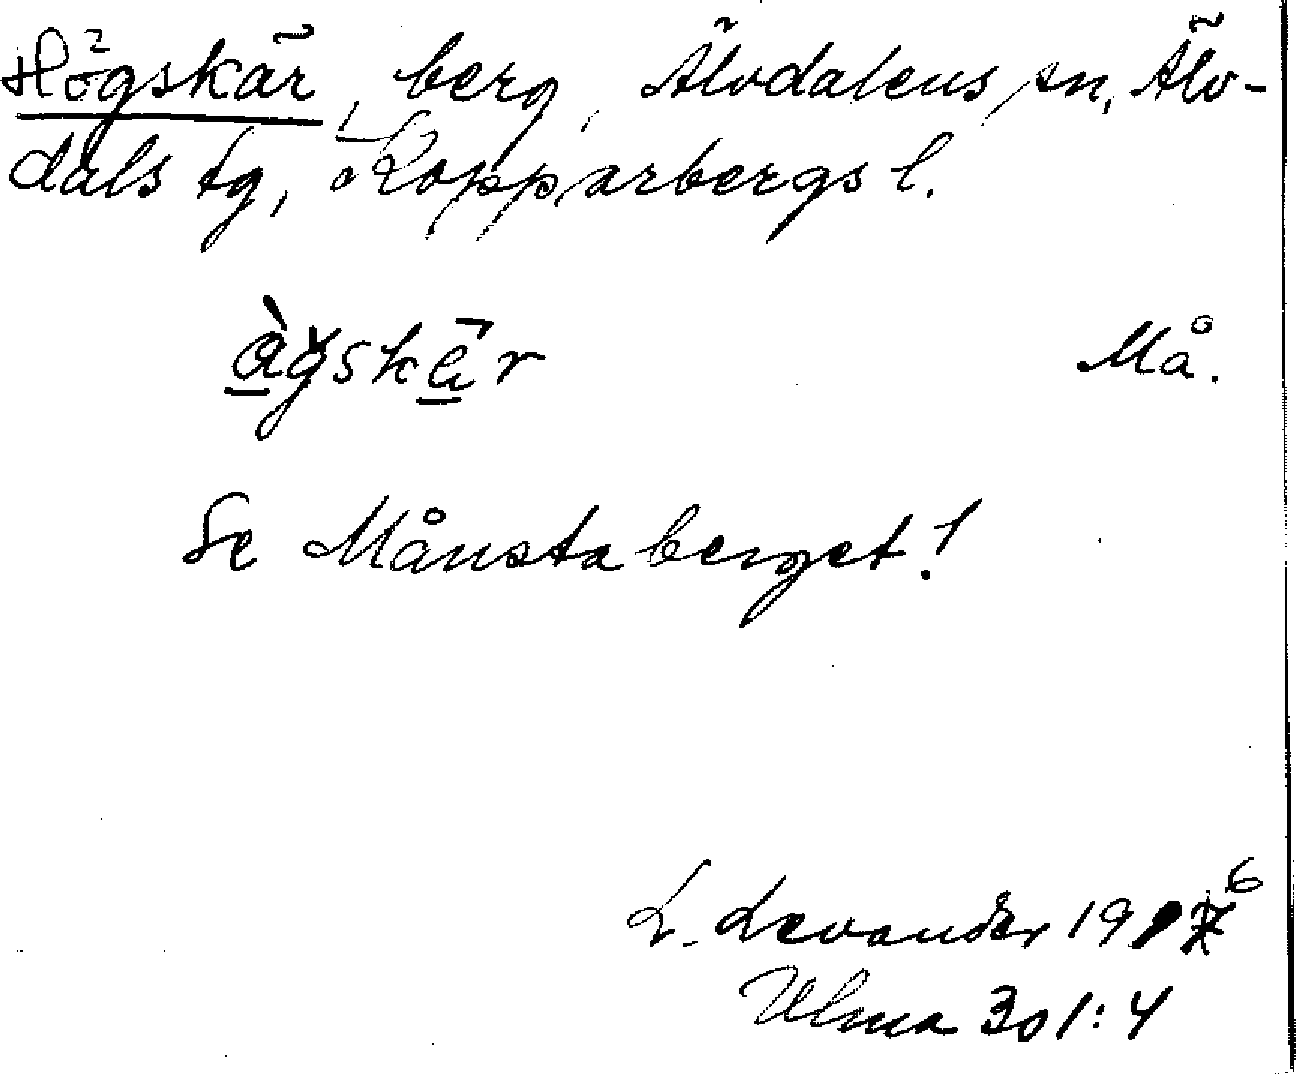 Högskär, berg, Älvdalens sn, Älv-
dals tg, Kopparbergs l.
àgskēr Må.
Se Månstaberget!
L. Levander 1916
Ulma 301:4